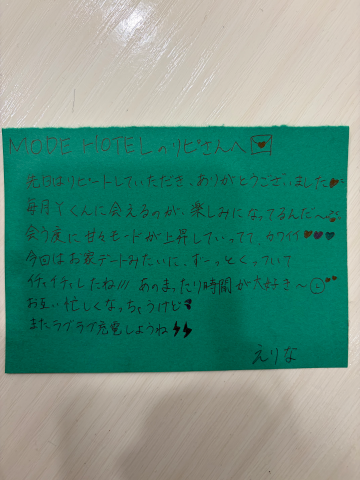 MODE HOTELのリピさんへ
先日はリピートしていただき、ありがとうございました
毎月Yくんに会えるのが、楽しみになってるんだ〜
会う度に甘々モードが上昇していってて、カワイイ
今回はお家デートみたいに、ずーっとくっついて
イチャイチャしたね!!! あのまったり時間が大好き〜
お互い忙しくなっちゃうけど
またラブラブ充電しようね
えりな